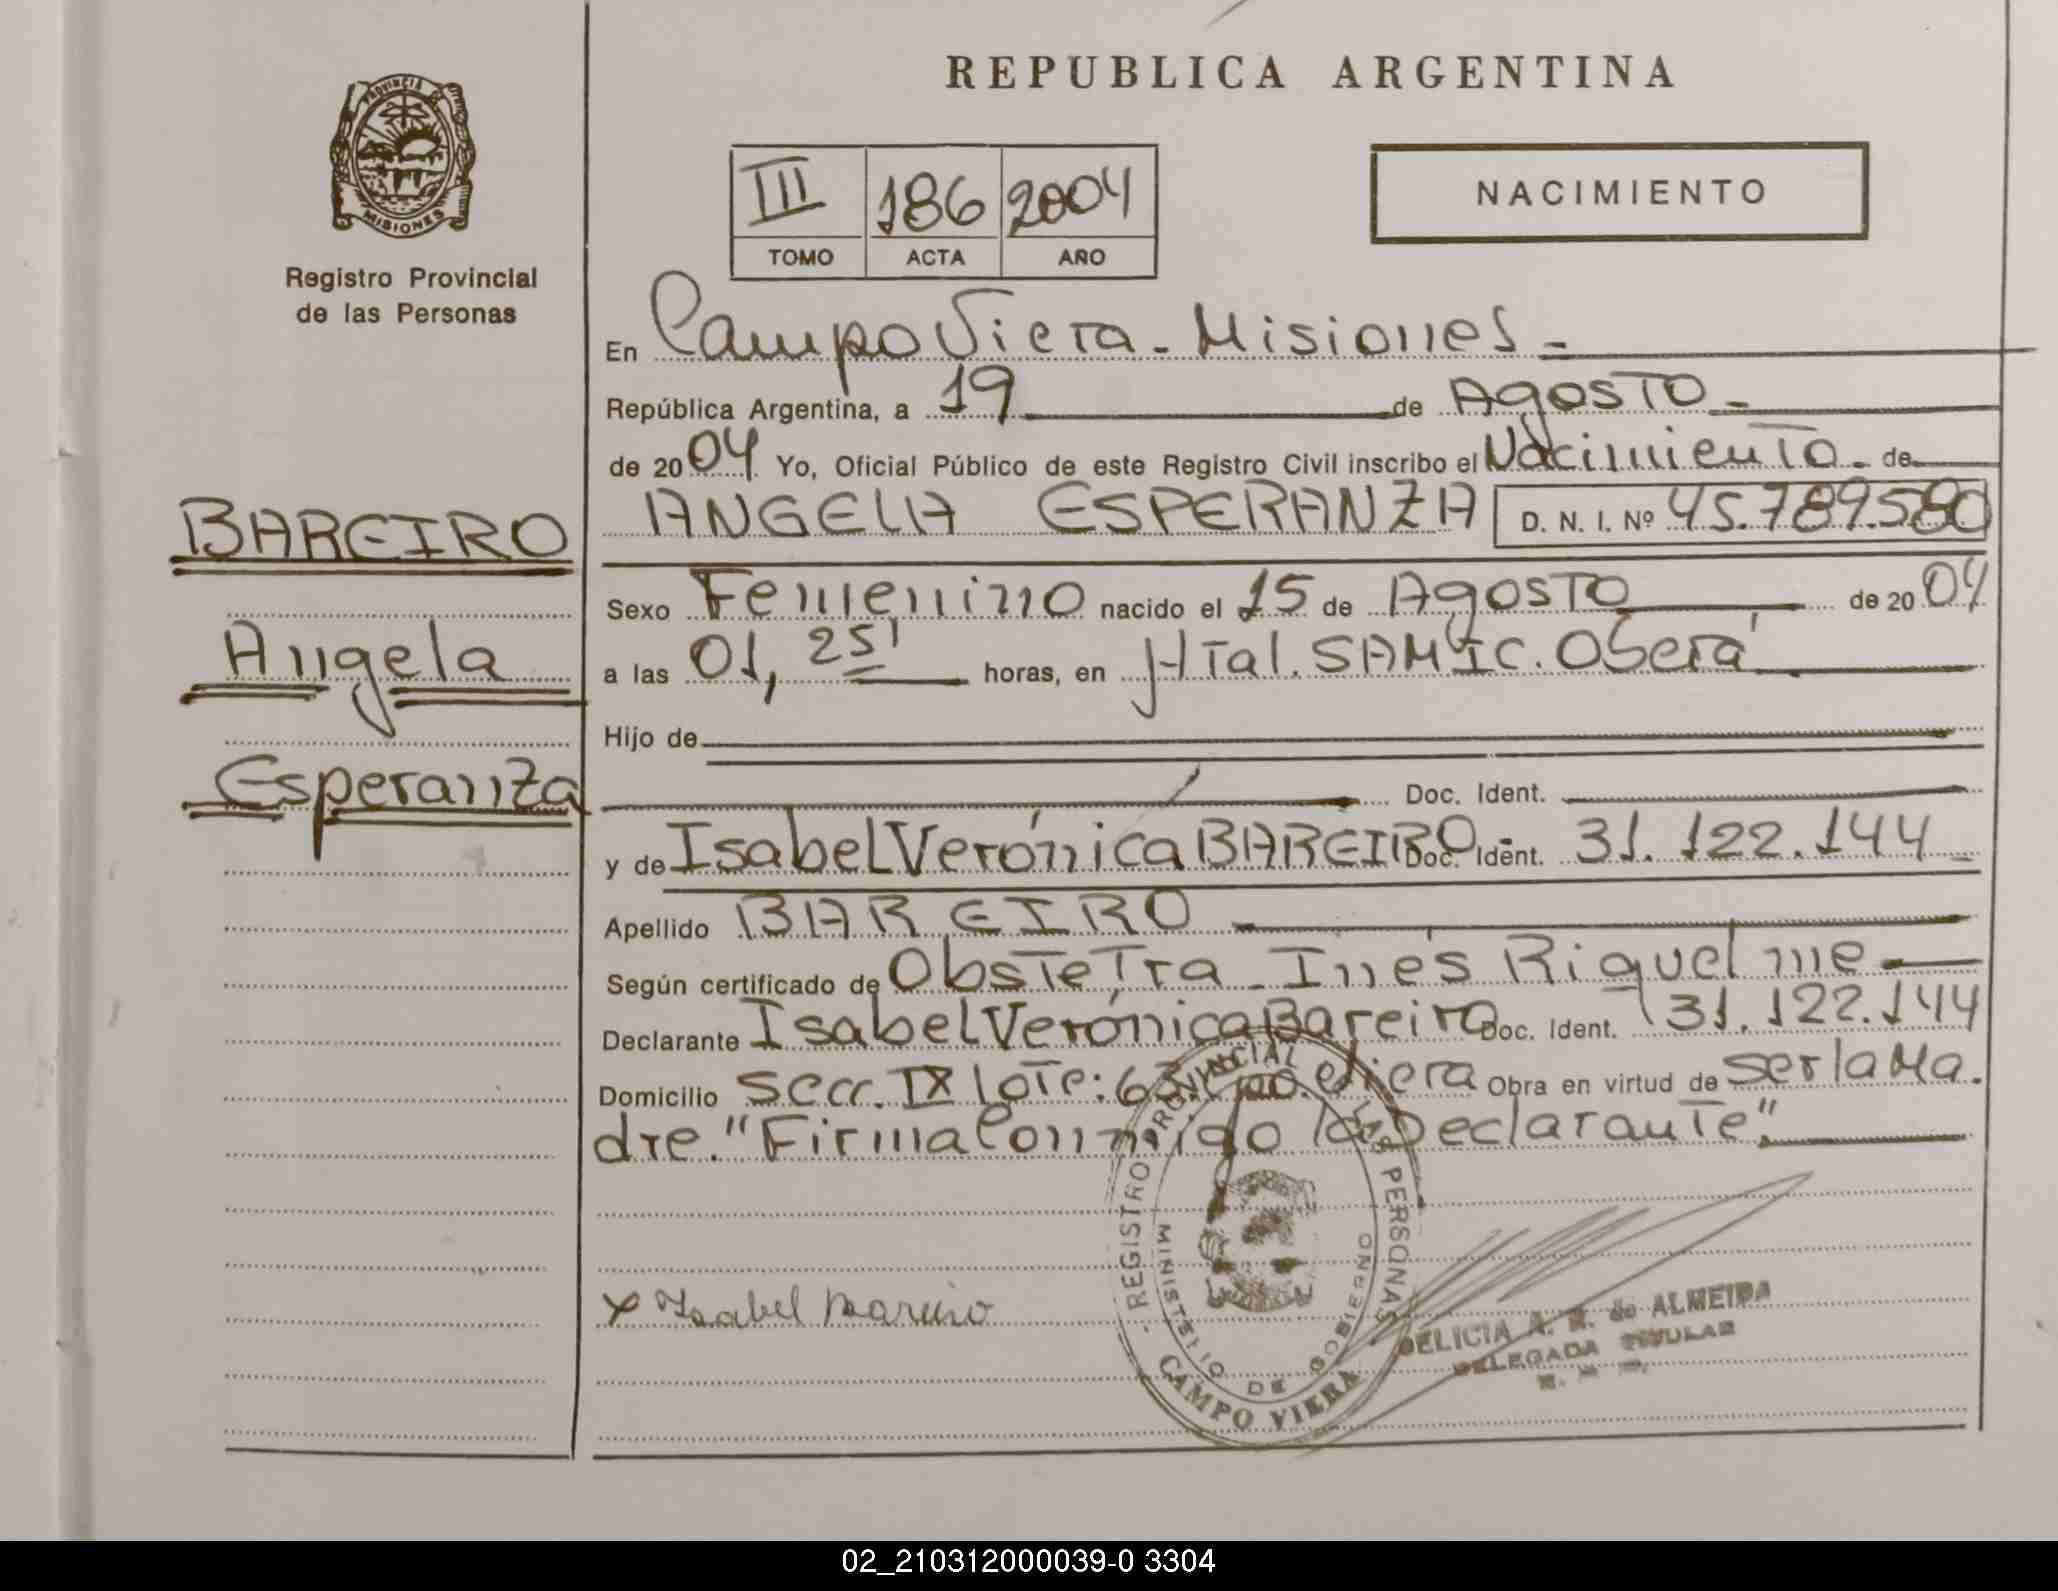 REPUBLICA ARGENTINA
PROVINCIA DE
MISIONES
Registro Provincial
de las Personas
III 186 2004
TOMO ACTA AÑO
NACIMIENTO
En Campo Viera - Misiones -
República Argentina, a 19 de Agosto -
de 2004 Yo, Oficial Público de este Registro Civil inscribo el Nacimiento - de
ANGELA ESPERANZA D. N. I. Nº 45.789.580
BAREIRO
Angela
Esperanza
Sexo Femenino nacido el 15 de Agosto de 2004
a las 01, 25' horas, en Htal. SAMIC. Oberá
Hijo de
Doc. Ident.
y de Isabel Verónica BAREIRO Doc. Ident. 31.122.144 -
Apellido BAREIRO
Según certificado de Obstetra - Inés Riquelme
Declarante Isabel Verónica Bareiro Doc. Ident. 31.122.144
Domicilio Secc. IX lote: 63 Cpo. Viera Obra en virtud de ser la Ma.
dre. "Firma Conmigo la Declarante".
x Isabel Bareiro
- REGISTRO PROVINCIAL LAS PERSONAS -
MINISTERIO DE GOBIERNO
CAMPO VIERA
DELICIA A. R. de ALMEIDA
DELEGADA TITULAR
02_210312000039-0 3304